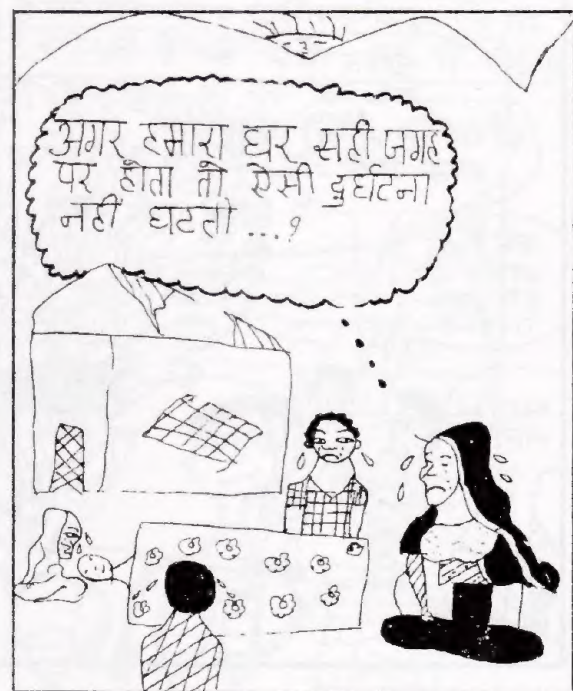 अगर हमारा घर सही जगह
पर होता तो ऐसी दुर्घटना
नहीं घटती ...?